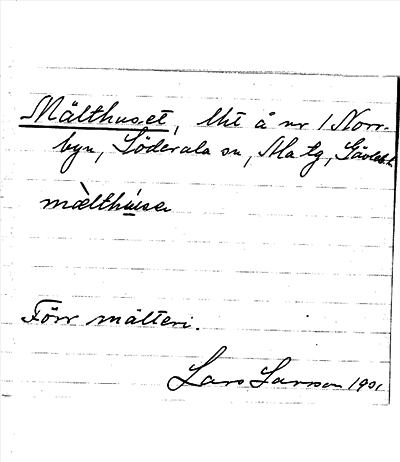 Mälthuset, lht å nr 1 Norr-
byn, Söderala sn, Ala tg, Gävleb. l.
mæ̀lthúsə
Förr mälteri.
Lars Larsson 1901